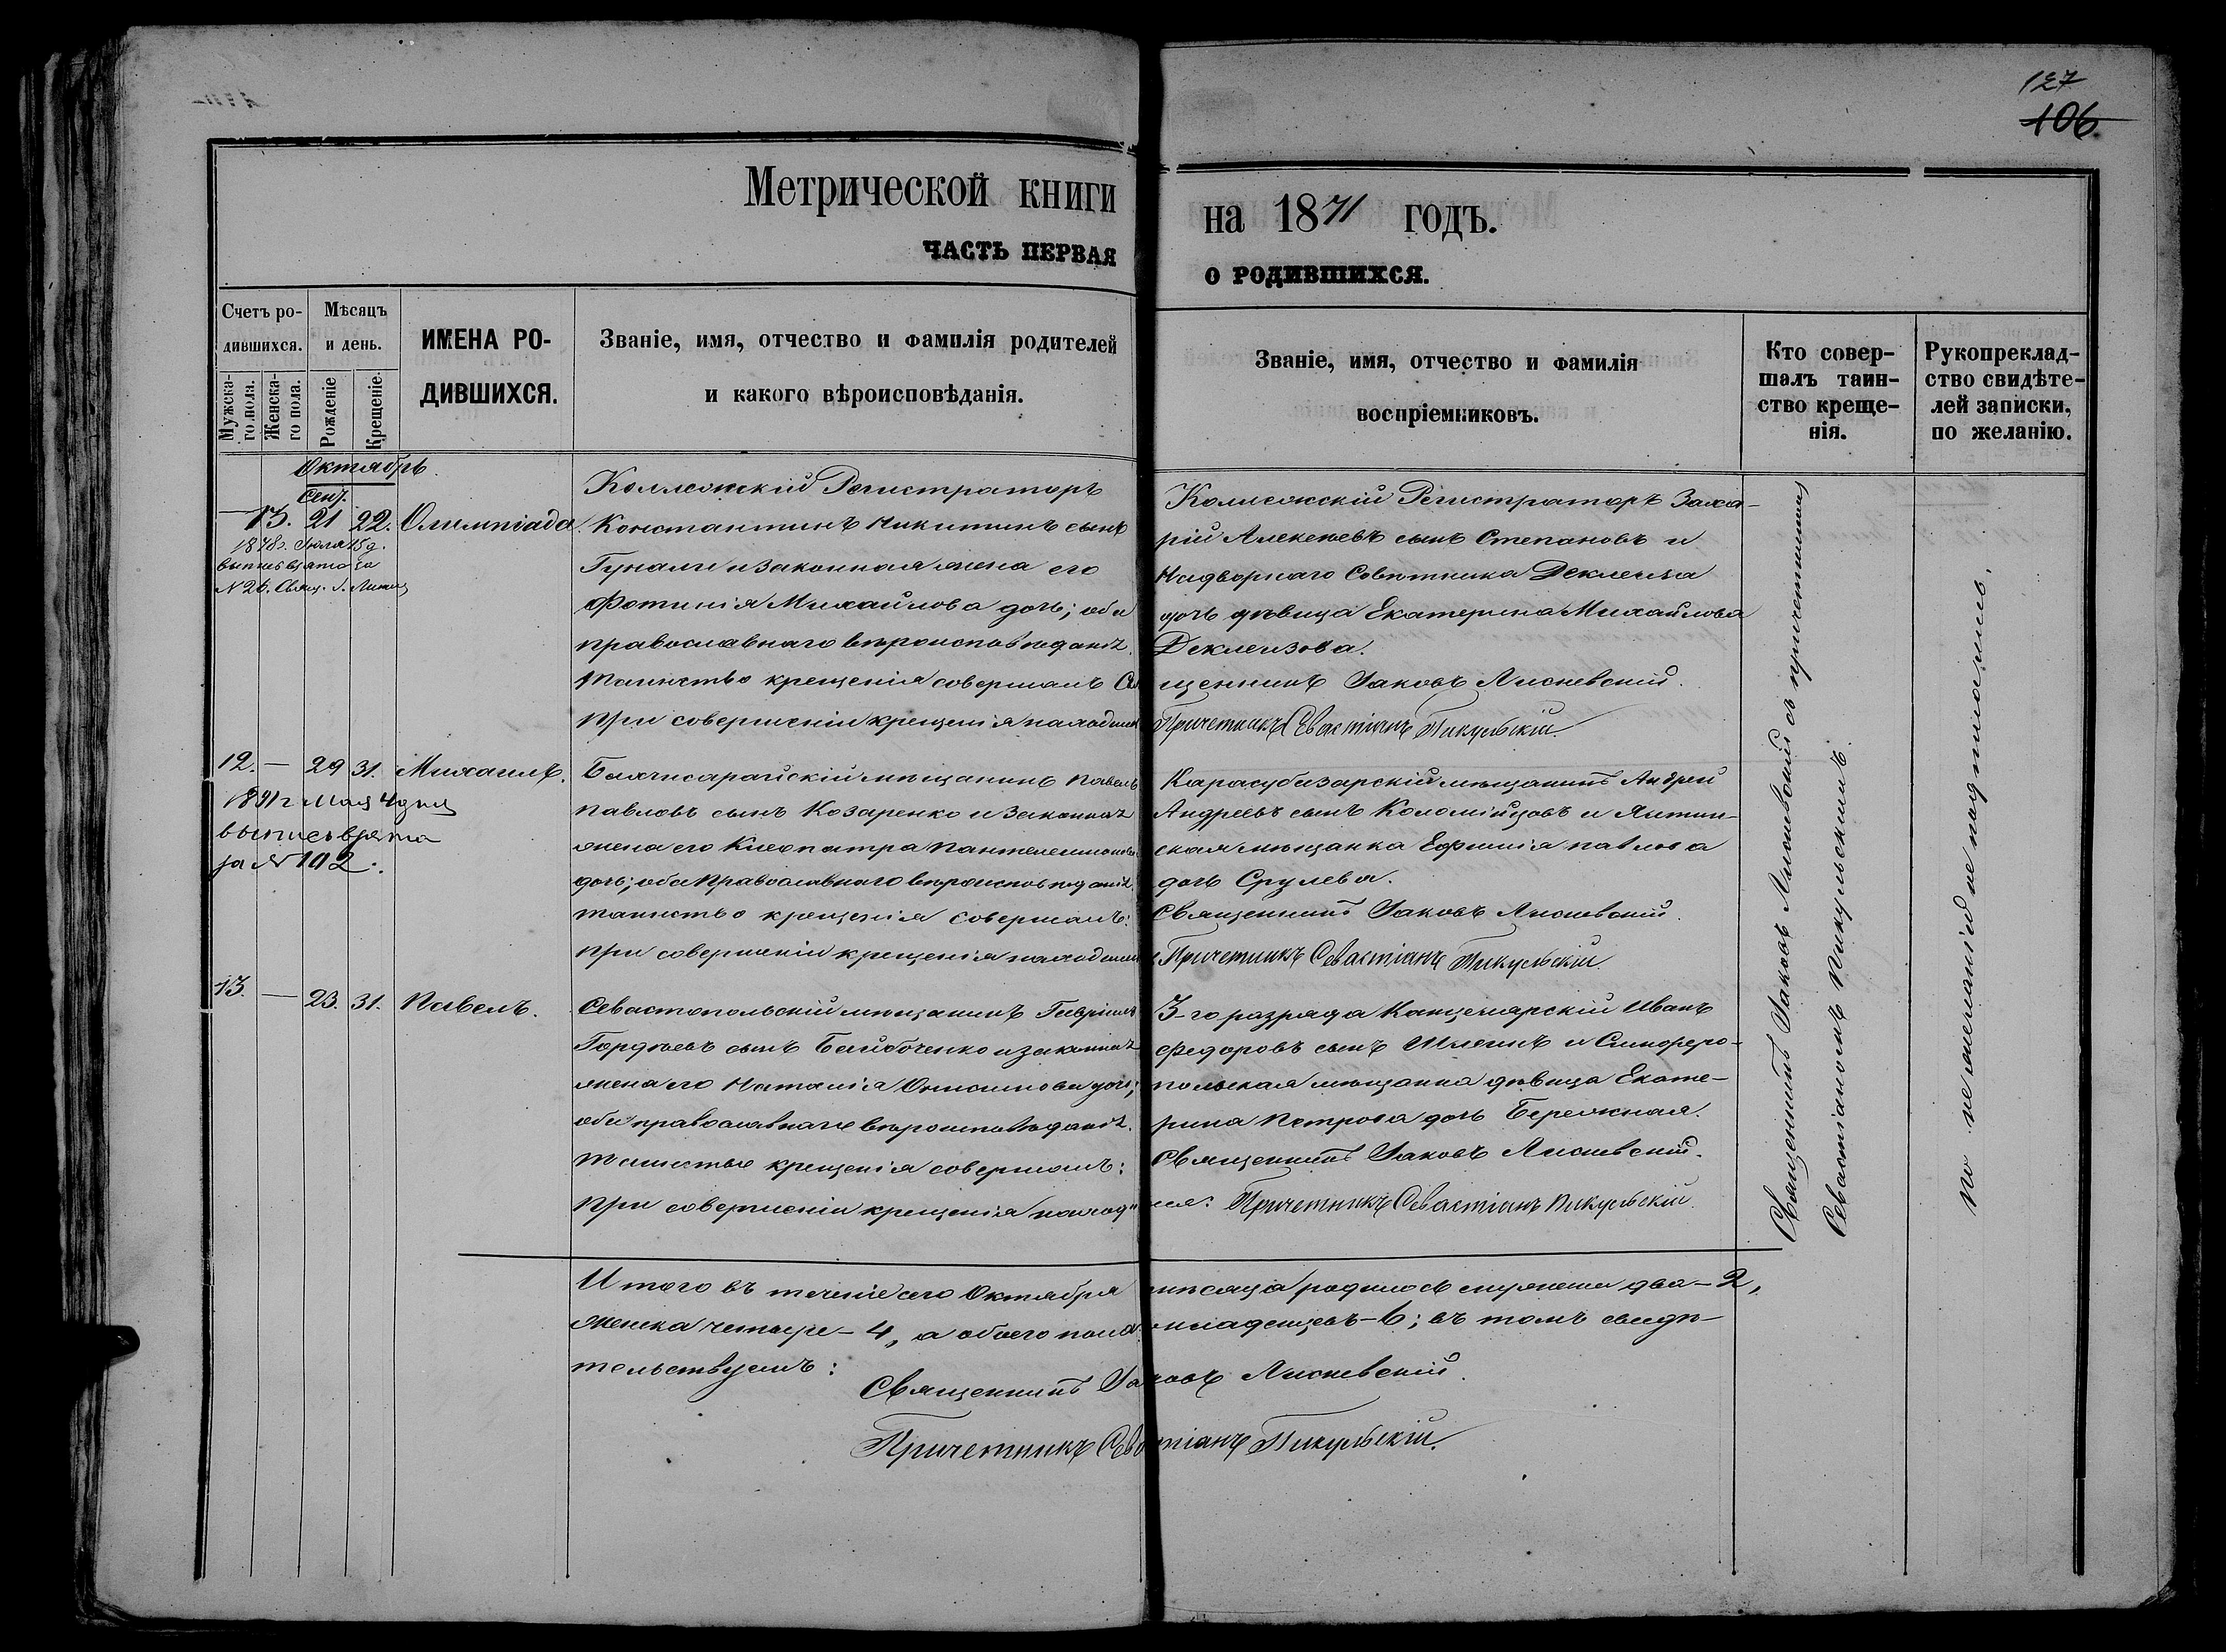 127
106
Метрической книги
на 1871 годъ.
ЧАСТЬ ПЕРВАЯ
О РОДИВШИХСЯ.
Счетъ ро-
дившихся.
Мужска-
го пола.
Женска-
го пола.
Мѣсяцъ
и день.
Рожденіе
Крещеніе.
ИМЕНА РО-
ДИВШИХСЯ.
Званіе, имя, отчество и фамилія родителей
и какого вѣроисповѣданія.
Званіе, имя, отчество и фамилія
воспріемниковъ.
Кто совер-
шалъ таин-
ство креще-
нія.
Рукоприклад-
ство свидѣте-
лей записки,
по желанію.
Октябрь.
Сент.
— 13. 21 22. Олимпіада.
1878г. Іюля 15 д.
вып. взята за
N 26. Свящ. І.
Коллежскій Регистраторъ
Константинъ Никитинъ сынъ
и законная жена его
Фотинія Михайлова дочь; оба
православнаго вѣроисповѣданія.
Таинство крещенія совершалъ Свя
При совершеніи крещенія находился
Коллежскій Регистраторъ Заха-
рій Алексѣевъ сынъ Степановъ и
Надворнаго Совѣтника Деклезва
дочь дѣвица Екатерина Михайлова
Деклеизова.
щенникъ Іаковъ Лисневскій.
Причетникъ Севастіанъ Пикульскій.
12. — 29 31. Михаилъ.
1891 г Мая 4 дня
вып. взята
за N 102.
Бахчисарайскій мѣщанинъ Павелъ
Павловъ сынъ Козаренко и законная
жена его Клеопатра Пантелеимонова
дочь; оба Православнаго вѣроисповѣданія.
Таинство крещенія совершалъ:
При совершеніи крещенія находился
Карасубазарскій мѣщанинъ Андрей
Андреевъ сынъ Коломійцовъ и Ялтин-
ская мѣщанка Ефимія Павлова
дочь Срулева.
Священникъ Іаковъ Лисневскій.
Причетникъ Севастіанъ Пикульскій.
13. — 23. 31. Павелъ.
Севастопольскій мѣщанинъ Гавріилъ
Гордѣевъ сынъ Байбоченко и законная
жена его Наталія Онисимова дочь;
оба православнаго вѣроисповѣданія.
Таинство крещенія совершалъ:
При совершеніи крещенія находил
3-го разряда Канцелярскій Иванъ
Федоровъ сынъ Шлеинъ и Симферо-
польская мѣщанка дѣвица Екате-
рина Петрова дочь Бережная.
Священникъ Іаковъ Лисневскій.
ся: Причетникъ Севастіанъ Пикульскій.
Священникъ Іаковъ Лисневскій съ причетникомъ
Севастіаномъ Пикульскимъ.
По не желанію не подписались.
Итого въ теченіе сего Октября мѣсяца родилось мужеска два – 2,
женска четыре – 4, а обоего пола младенцевъ – 6; въ томъ свидѣ-
тельствуемъ:
Священникъ Іаковъ Лисневскій.
Причетникъ Севастіанъ Пикульскій.